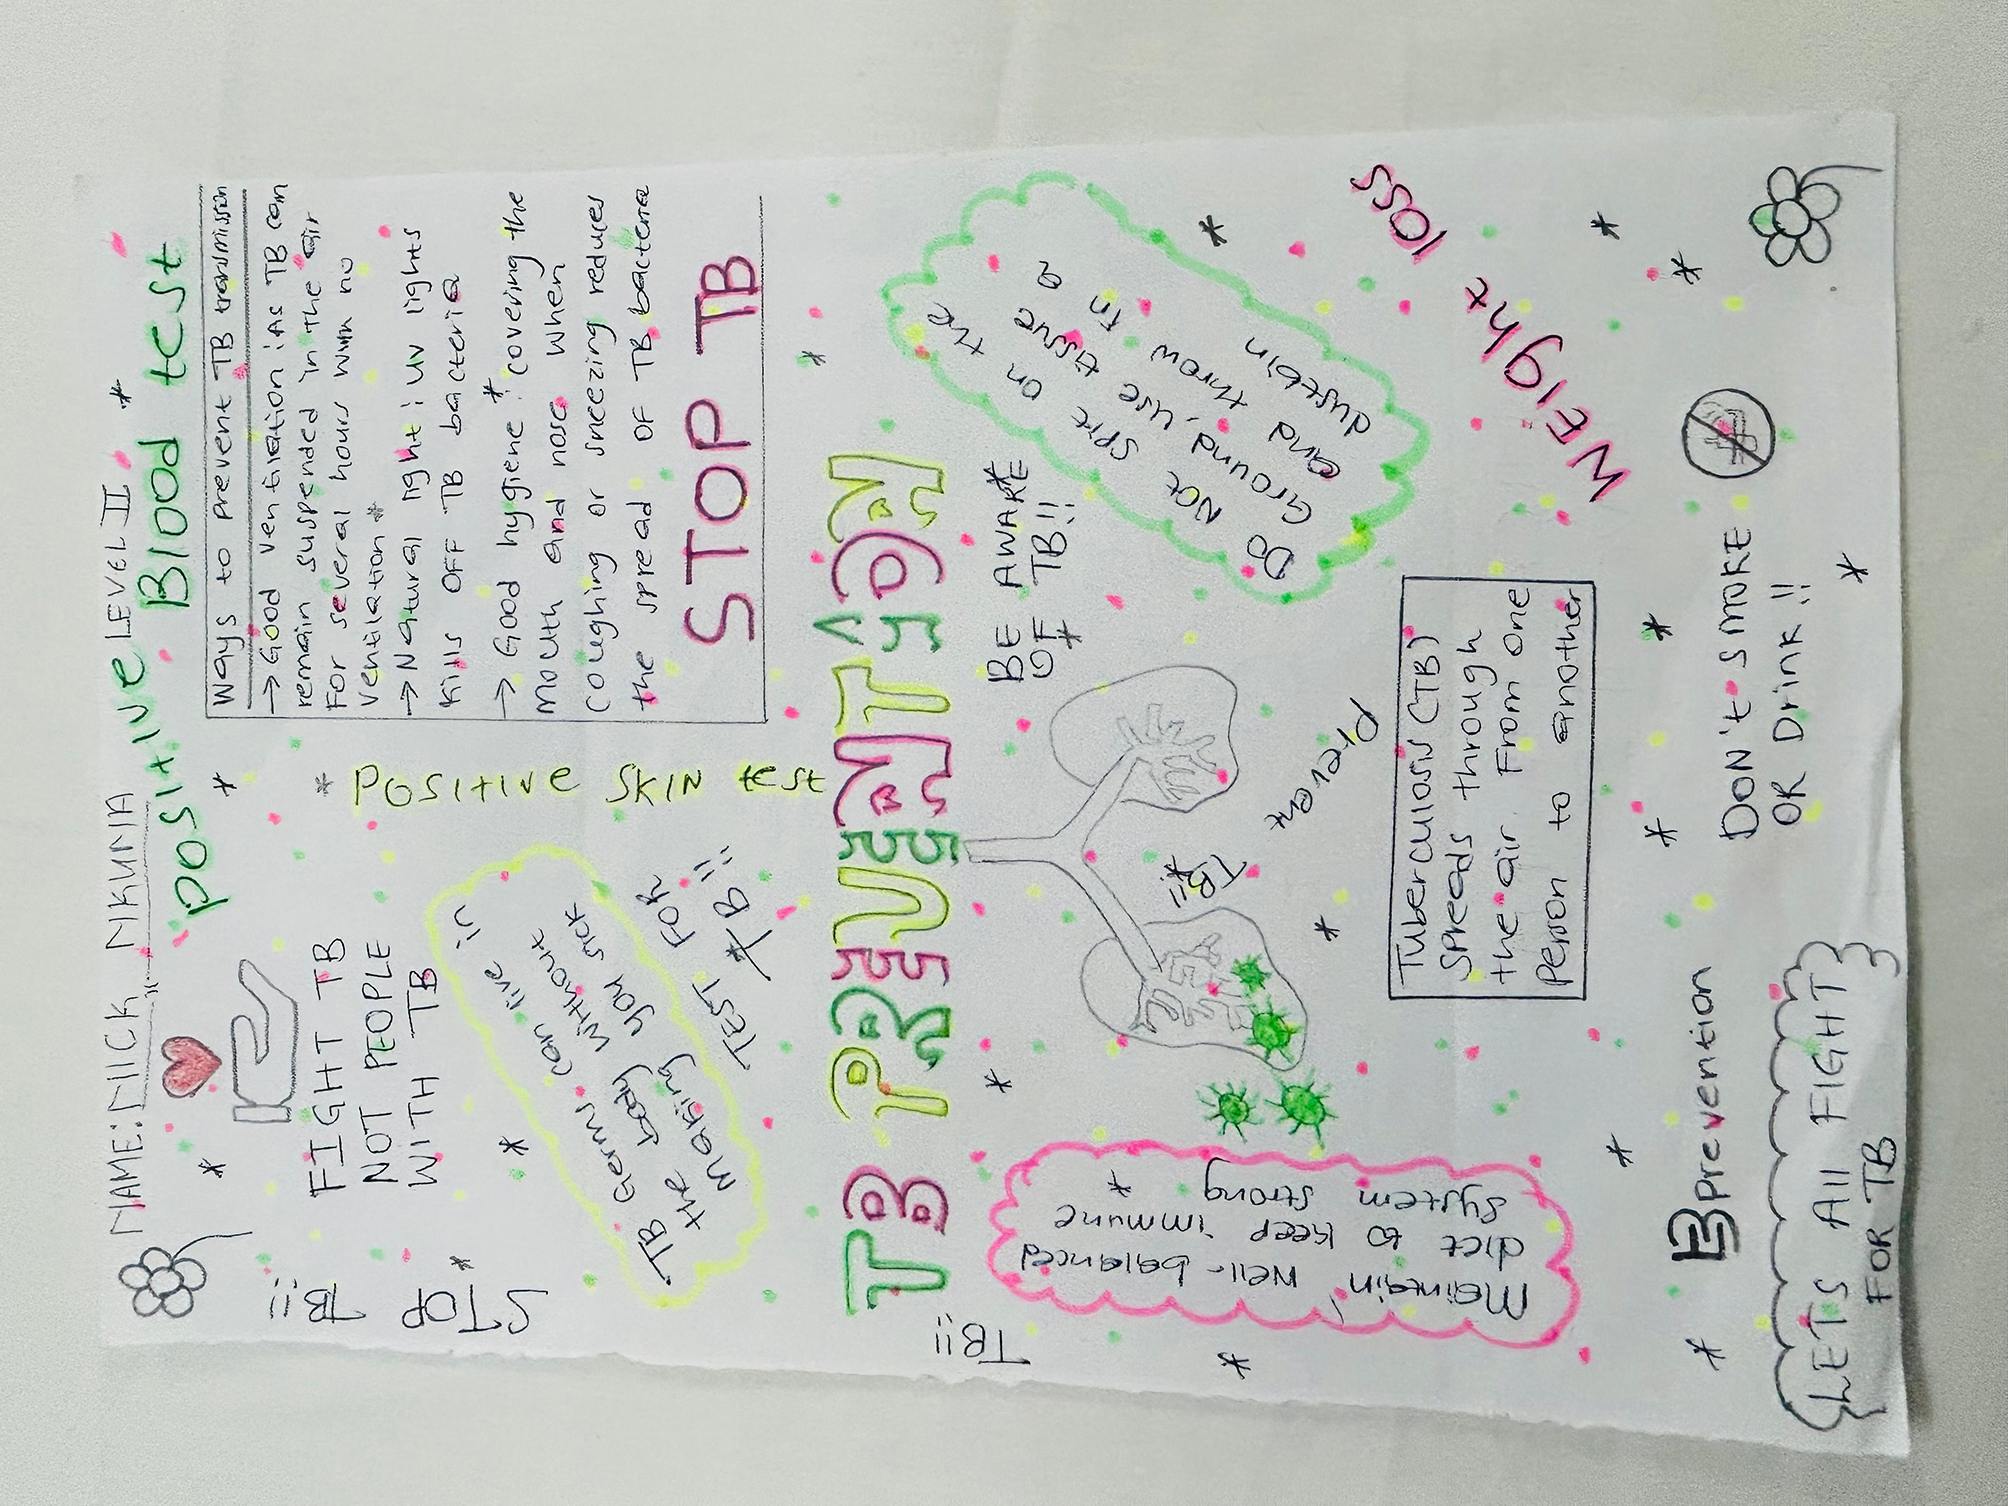 NAME: NICK NKUNA LEVEL II
positive Blood test
FIGHT TB
NOT PEOPLE
WITH TB
STOP
TB!!
Ways to prevent TB transmission
→ Good ventilation: AS TB can
remain suspended in the air
For several hours with no
ventilation
→ Natural light: UV lights
Kills OFF TB bacteria
→ Good hygiene: covering the
Mouth and nose when
coughing or sneezing reduces
the spread OF TB bacteria
STOP TB
* POSITIVE SKIN test
TB Germs can live in
the body without
making you sick
TEST FOR
TB!!
TB PREVENTION
TB!!
BE AWARE
OF TB!!
Maintain well-balanced
diet to keep immune
system strong
Do Not Spit on the
Ground, use tissue
and throw in a
dustbin
Prevent
TB!!
WEIGHT loss
Tuberculosis (TB)
Spreads through
the air. From one
Person to another
Prevention
DON'T SMOKE
OR Drink!!
LETS All FIGHT
FOR TB